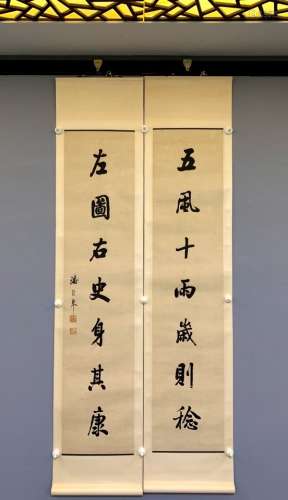 五風十雨歲則稔
左圖右史身其康